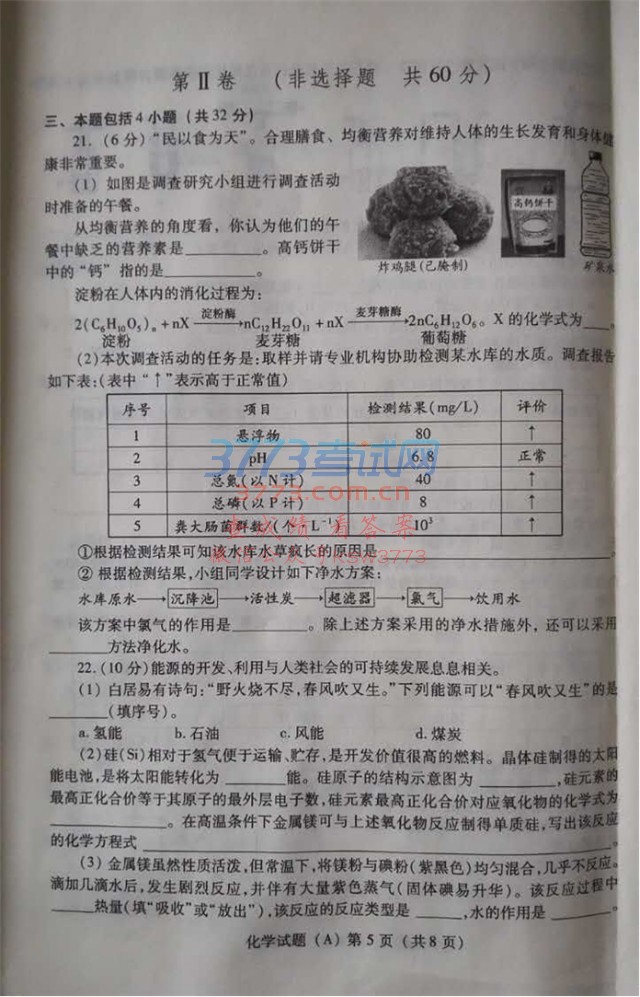 第Ⅱ卷 （非选择题 共60分）
三、本题包括4小题（共32分）
21.(6分)“民以食为天”。合理膳食、均衡营养对维持人体的生长发育和身体健
康非常重要。
(1) 如图是调查研究小组进行调查活动
时准备的午餐。
从均衡营养的角度看，你认为他们的午
餐中缺乏的营养素是________。高钙饼干
中的“钙”指的是________。
高钙饼干
炸鸡腿(已腌制)
矿泉水
淀粉在人体内的消化过程为:
2(C₆H₁₀O₅)ₙ+nX 淀粉酶→nC₁₂H₂₂O₁₁+nX 麦芽糖酶→2nC₆H₁₂O₆。X 的化学式为___。
淀粉 麦芽糖 葡萄糖
(2)本次调查活动的任务是:取样并请专业机构协助检测某水库的水质。调查报告
如下表:(表中“↑”表示高于正常值)
序号 项目 检测结果(mg/L) 评价
1 悬浮物 80 ↑
2 pH 6.8 正常
3 总氮(以N计) 40 ↑
4 总磷(以P计) 8 ↑
5 粪大肠菌群数/(个·L⁻¹) 10³ ↑
3773考试网
www.3773.com.cn
查成绩 看答案
微信公众号KSW3773
①根据检测结果可知该水库水草疯长的原因是________。
② 根据检测结果,小组同学设计如下净水方案:
水库原水→沉降池→活性炭→超滤器→氯气→饮用水
该方案中氯气的作用是________。除上述方案采用的净水措施外，还可以采用
________方法净化水。
22.(10分)能源的开发、利用与人类社会的可持续发展息息相关。
(1) 白居易有诗句:“野火烧不尽,春风吹又生。”下列能源可以“春风吹又生”的是
________(填序号)。
a. 氢能 b. 石油 c. 风能 d. 煤炭
(2)硅(Si)相对于氢气便于运输、贮存,是开发价值很高的燃料。晶体硅制得的太阳
能电池,是将太阳能转化为________能。硅原子的结构示意图为________,硅元素的
最高正化合价等于其原子的最外层电子数,硅元素最高正化合价对应氧化物的化学式为
________。在高温条件下金属镁可与上述氧化物反应制得单质硅,写出该反应
的化学方程式________。
(3) 金属镁虽然性质活泼,但常温下,将镁粉与碘粉(紫黑色)均匀混合,几乎不反应。
滴加几滴水后,发生剧烈反应,并伴有大量紫色蒸气(固体碘易升华)。该反应过程中
________热量(填“吸收”或“放出”),该反应的反应类型是________,水的作用是________。
化学试题（A）第5页（共8页）